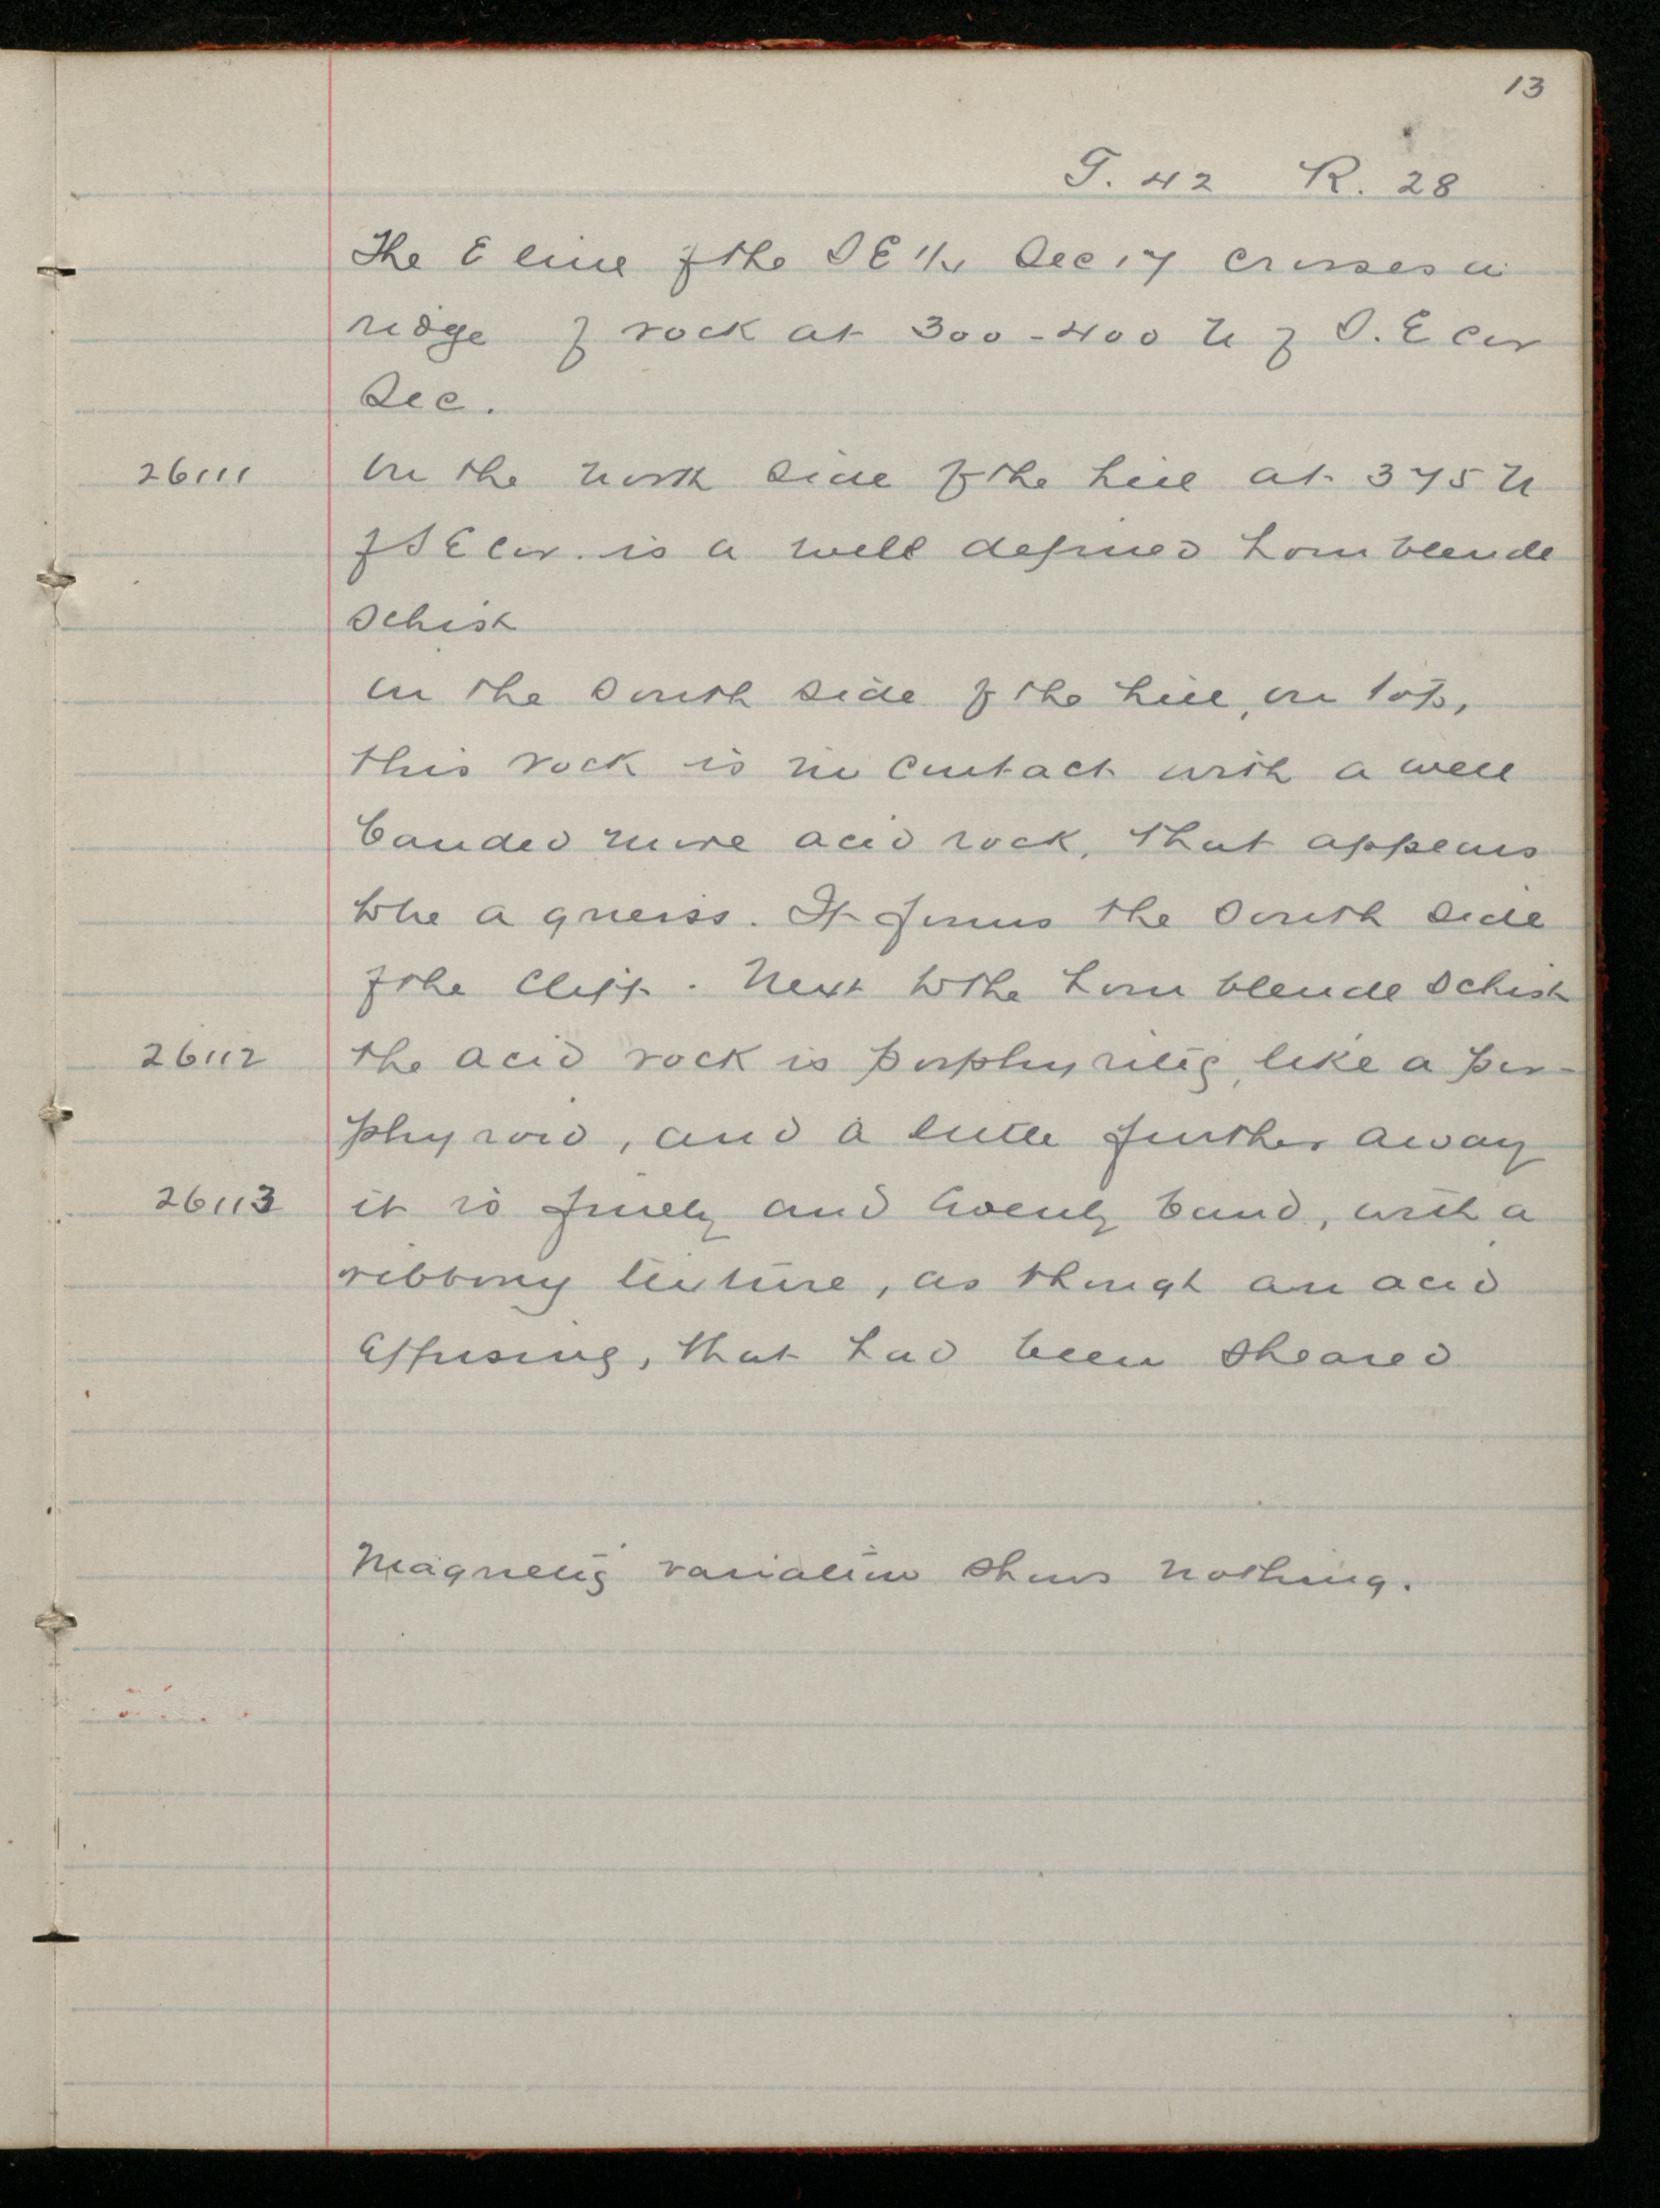 13
T. 42 R. 28
The E line of the SE 1/4 Sec 17 crosses a
ridge of rock at 300-400 N of S.E Cor
Sec.
26111 On the north side of the hill at 375 N
of SE Cor. is a well defined hornblende
schist
On the south side of the hill, on top,
this rock is in contact with a well
banded more acid rock, that appears
to be a gneiss. It forms the south side
of the cliff. Next to the hornblende schist
26112 the acid rock is porphyritic, like a por-
phyroid, and a little further away
26113 it is finely and evenly band, with a
ribbony texture, as though an acid
effusive, that had been sheared
Magnetic variation shows nothing.